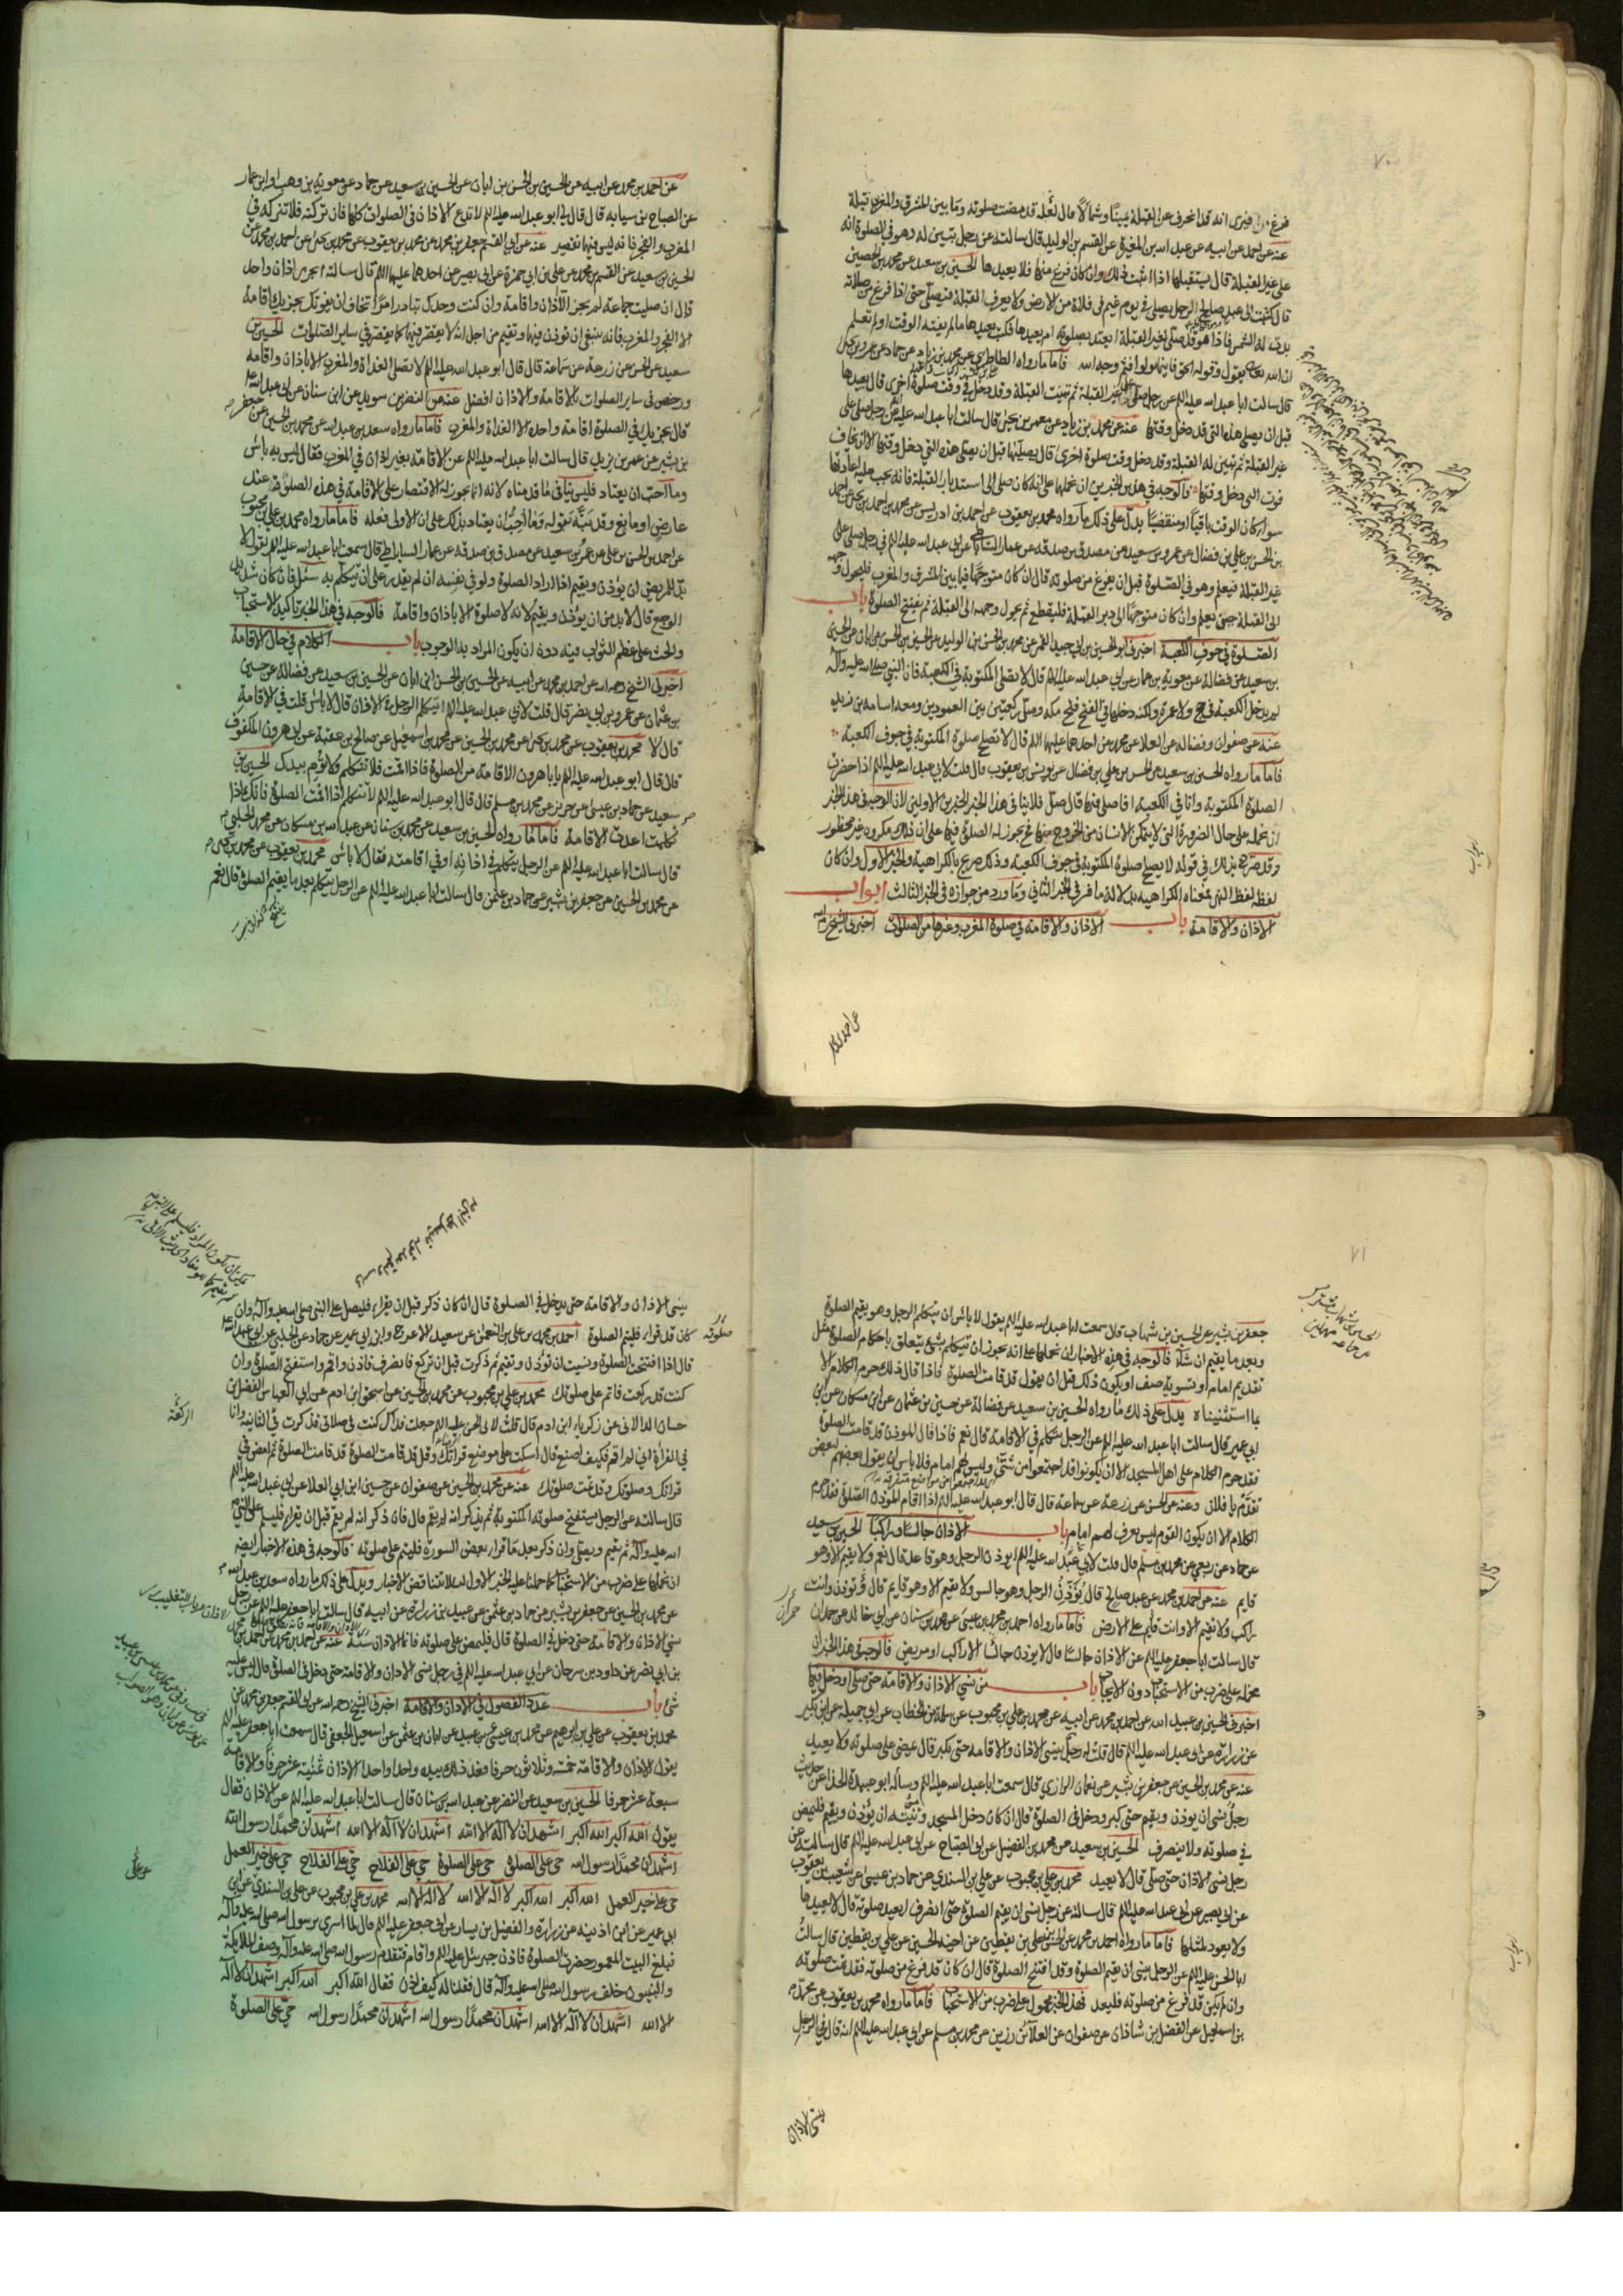 ٧٠
فرغ فيرى انه قد انحرف عن القبلة يمينا وشمالا قال لعله قد مضت صلوته وما بين المشرق والمغرب قبلة
عنه عن احمد عن ابيه عن عبد الله بن المغيرة عن القسم بن الوليد قال سالته عن رجل تبين له وهو في الصلوة انه
على غير القبلة قال يستقبلها اذا اثبت ذلك وان كان فرغ منها فلا يعيدها الحسين بن سعيد عن محمد بن الحصين
قال كتبت الى عبد صالح الرجل يصلى في يوم غيم في فلاة من الارض ولا يعرف القبلة فيصلى حتى اذا فرغ من صلاته
بدت له الشمس فاذا هو قد صلى لغير القبلة ايعتد بصلوته ام يعيدها فكتب يعيدها ما لم يفته الوقت اولم تعلم
ان الله تعالى يقول وقوله الحق فاينما تولوا فثم وجه الله فاما ما رواه الطاطري عن محمد بن زياد عن حماد عن عمرو بن يحيى
قال سالت ابا عبد الله عليه السلم عن رجل صلى على غير القبلة ثم تبينت القبلة وقد دخل في وقت صلوة اخرى قال يعيدها
قبل ان يصلى هذه التى قد دخل وقتها عنه عن محمد بن زياد عن معمر بن يحيى قال سالت ابا عبد الله عليه السلم عن رجل صلى على
غير القبلة ثم تبين له القبلة وقد دخل وقت صلوة اخرى قال يصليها قبل ان يصلى هذه التى دخل وقتها الا ان يخاف
فوت التى دخل وقتها فالوجه في هذين الخبرين ان نحملها على انه كان صلى الى استدبار القبلة فانه يجب عليه اعادتها
سواء كان الوقت باقيا او منقضيا يدل على ذلك ما رواه محمد بن يعقوب عن احمد بن ادريس عن محمد بن احمد بن يحيى عن احمد
بن الحسن بن علي بن فضال عن عمرو بن سعيد عن مصدق بن صدقه عن عمار الساباطى عن ابى عبد الله عليه السلم في رجل صلى على
غير القبلة فيعلم وهو في الصلوة قبل ان يفرغ من صلوته قال ان كان متوجها فيما بين المشرق والمغرب فليحول وجهه
الى القبلة حين يعلم وان كان متوجها الى دبر القبلة فليقطع ثم يحول وجهه الى القبلة ثم يفتتح الصلوة باب
الصلوة في جوف الكعبة اخبرنى ابو الحسين بن ابى جيد القمى عن محمد بن الحسن بن الوليد عن الحسين بن الحسن بن ابان عن الحسين
بن سعيد عن فضالة عن معوية بن عمار عن ابى عبد الله عليه السلم قال لا تصلى المكتوبة في الكعبة فان النبي صلى الله عليه وآله
لم يدخل الكعبة في حج ولا عمرة ولكنه دخلها في الفتح فتح مكه وصلى ركعتين بين العمودين ومعه اسامه بن زيد
عنه عن صفوان وفضاله عن العلا عن محمد عن احدهما عليهما السلم قال لا تصلح صلوة المكتوبة في جوف الكعبة
فاما ما رواه الحسين بن سعيد عن الحسن بن علي بن فضال عن يونس بن يعقوب قال قلت لابى عبد الله عليه السلم اذا حضرت
الصلوة المكتوبة وانا في الكعبة افاصلى فيها قال صل فلا ينافى هذا الخبر الخبرين الاولين لان الوجه في هذا الخبر
ان نحمله على حال الضرورة التى لا يتمكن الانسان من الخروج منها فح يجوز له الصلوة فيها على ان ذلك مكروه غير محظور
وقد صرح بذلك في قوله لا يصلح صلوة المكتوبة في جوف الكعبة وذلك صريح بالكراهية والخبر الاول وان كان
لفظه لفظ النهى فمعناه الكراهيه بدلالة ما فسر في الخبر الثانى وما ورد من جوازه في الخبر الثالث ابواب
الاذان والاقامة باب الاذان والاقامة في صلوة المغرب وغيرها من الصلوات اخبرنى الشيخ رحمه الله
عن احمد
عن احمد بن محمد عن ابيه عن الحسين بن الحسن بن ابان عن الحسين بن سعيد عن حماد عن معوية بن وهب او ابن عمار
عن الصباح بن سيابه قال قال لى ابو عبد الله عليه السلم لا تدع الاذان في الصلوات كلها فان تركته فلا تتركه في
المغرب والفجر فانه ليس فيهما تقصير عنه عن ابى القسم جعفر بن محمد عن محمد بن يعقوب عن محمد بن يحيى عن احمد بن محمد عن
الحسين بن سعيد عن القسم بن محمد عن علي بن ابي حمزة عن ابى بصير عن احدهما عليهما السلم قال سالته ايجزى اذان واحد
قال ان صليت جماعة لم يجز الا اذان واقامة وان كنت وحدك تبادر امرا تخاف ان يفوتك يجزيك اقامة
الا الفجر والمغرب فانه ينبغى ان تؤذن فيهما وتقيم من اجل انه لا يقصر فيهما كما يقصر في ساير الصلوات الحسين بن
سعيد عن الحسن عن زرعة عن سماعة قال قال ابو عبد الله عليه السلم لا تصلى الغداة والمغرب الا باذان واقامه
ورخص في ساير الصلوات بالاقامة والاذان افضل عنه عن النضر بن سويد عن ابن سنان عن ابى عبد الله
قال يجزيك في الصلوة اقامة واحدة الا الغداة والمغرب فاما ما رواه سعد بن عبد الله عن محمد بن الحسين عن جعفر
بن بشير عن عمر بن يزيد قال سالت ابا عبد الله عليه السلم عن الاقامة بغير اذان في المغرب فقال ليس به باس
وما احب ان يعتاد فليس ينافى ما قدمناه لانه انما يجوز له الاقتصار على الاقامة في هذه الصلوة عند
عارض او مانع وقد نبه بقوله وما احب ان يعتاد بذلك على ان الاولى فعله فاما ما رواه محمد بن علي بن محبوب
عن احمد بن الحسن بن على عن عمرو بن سعيد عن مصدق بن صدقه عن عمار الساباطى قال سمعت ابا عبد الله عليه السلم يقول لا
بد للمريض ان يؤذن ويقيم اذا اراد الصلوة ولو في نفسه ان لم يقدر على ان يتكلم به سئل فان كان شديد
الوجع قال لا بد من ان يؤذن ويقيم لانه لا صلوة الا باذان واقامة فالوجه في هذا الخبر تاكيد الاستحباب
والحث على عظم الثواب فيه دون ان يكون المراد به الوجوب باب الكلام في حال الاقامة
اخبرنى الشيخ رحمه الله عن احمد بن محمد عن ابيه عن الحسين بن الحسن ابن ابان عن الحسين بن سعيد عن فضالة عن حسين
بن عثمان عن عمرو بن ابى نصر قال قلت لابى عبد الله عليه السلم ايتكلم الرجل في الاذان قال لا باس قلت في الاقامة
قال لا محمد بن يعقوب عن محمد بن يحيى عن محمد بن الحسين عن محمد بن اسمعيل عن صالح بن عقبة عن ابى هرون المكفوف
قال قال ابو عبد الله عليه السلم يا با هرون الاقامة من الصلوة فاذا اقمت فلا تتكلم ولا تؤم بيدك الحسين بن
سعيد عن حماد بن عيسى عن حريز عن محمد بن مسلم قال قال ابو عبد الله عليه السلم لا تتكلم اذا اقمت الصلوة فانك اذا
تكلمت اعدت الاقامة فاما ما رواه الحسين بن سعيد عن محمد بن سنان عن عبد الله بن مسكان عن محمد الحلبى
قال سالت ابا عبد الله عليه السلم عن الرجل يتكلم في اذانه او في اقامته فقال لا باس محمد بن يعقوب عن محمد بن يحيى
عن محمد بن الحسين عن جعفر بن بشير عن حماد بن عثمن قال سالت ابا عبد الله عليه السلم عن الرجل يتكلم بعد ما يقيم الصلوة قال نعم
٧١
جعفر بن بشير عن الحسين بن شهاب قال سمعت ابا عبد الله عليه السلم يقول لا باس ان يتكلم الرجل وهو يقيم الصلوة
وبعد ما يقيم ان شاء فالوجه في هذه الاخبار ان نحملها على انه يجوز ان يتكلم بشئ يتعلق باحكام الصلوة مثل
تقديم امام او تسوية صف او يكون ذلك قبل ان يقول قد قامت الصلوة فاذا قال ذلك حرم الكلام الا
بما استثنيناه يدل على ذلك ما رواه الحسين بن سعيد عن فضالة عن حسين بن عثمان عن ابن مسكان عن ابن
ابى عمير قال سالت ابا عبد الله عليه السلم عن الرجل يتكلم في الاقامة قال نعم فاذا قال الموذن قد قامت الصلوة
فقد حرم الكلام على اهل المسجد الا ان يكونوا قد اجتمعوا من شتى وليس لهم امام فلا باس ان يقول بعضهم لبعض
تقدم يا فلان وعنه عن الحسن عن زرعة عن سماعة قال قال ابو عبد الله عليه السلم اذا اقام الموذن الصلوة فقد حرم
الكلام الا ان يكون القوم ليس يعرف لهم امام باب الاذان جالسا او راكبا الحسين بن سعيد
عن حماد عن ربعي عن محمد بن مسلم قال قلت لابى عبد الله عليه السلم ايوذن الرجل وهو قاعد قال نعم ولا يقيم الا وهو
قايم عنه عن احمد بن محمد عن عبد صالح قال يؤذن الرجل وهو جالس ولا يقيم الا وهو قايم قال وتوذن وانت
راكب ولا تقيم الا وانت قائم على الارض فاما ما رواه احمد بن محمد بن عيسى عن محمد بن سنان عن ابى خالد عن حمران
قال سالت ابا جعفر عليه السلم عن الاذان جالسا قال لا يوذن جالسا الا راكب او مريض فالوجه في هذا الخبر ان
نحمله على ضرب من الاستحباب دون الايجاب باب من نسى الاذان والاقامة حتى صلى او دخل فيها
اخبرنى الحسين بن عبيد الله عن احمد بن محمد عن ابيه عن محمد بن علي بن محبوب عن سلمة بن الخطاب عن ابى جميلة عن ابن بكير
عن زراره عن ابى عبد الله عليه السلم قال قلت له رجل ينسى الاذان والاقامه حتى يكبر قال يمضى على صلوته ولا يعيد
عنه عن محمد بن الحسين عن جعفر بن بشير عن نعمان الرازي قال سمعت ابا عبد الله عليه السلم وساله ابو عبيدة الحذاء عن حديث
رجل نسى ان يوذن ويقيم حتى كبر ودخل في الصلوة قال ان كان دخل المسجد ومن نيته ان يؤذن ويقيم فليمض
في صلوته ولا ينصرف الحسين بن سعيد عن محمد بن الفضيل عن ابى الصباح عن ابى عبد الله عليه السلم قال سالته عن
رجل نسى الاذان حتى صلى قال لا يعيد محمد بن علي بن محبوب عن علي بن السندي عن حماد بن عيسى عن شعيب بن يعقوب
عن ابى بصير عن ابى عبد الله عليه السلم قال سالته عن رجل نسى ان يقيم الصلوة حتى انصرف ايعيد صلوته قال لا يعيدها
ولا يعود لمثلها فاما ما رواه احمد بن محمد عن الحسن بن علي بن يقطين عن اخيه الحسين عن علي بن يقطين قال سالت
ابا الحسن عليه السلم عن الرجل ينسى ان يقيم الصلوة وقد افتتح الصلوة قال ان كان قد فرغ من صلوته فقد تمت صلوته
وان لم يكن قد فرغ من صلوته فليعد فهذا الخبر محمول على ضرب من الاستحباب فاما ما رواه محمد بن يعقوب عن محمد
بن اسمعيل عن الفضل بن شاذان عن صفوان عن العلاء بن رزين عن محمد بن مسلم عن ابى عبد الله عليه السلم انه قال في الرجل
ينسى الاذان
ينسى الاذان والاقامة حتى يدخل في الصلوة قال ان كان ذكر قبل ان يقرا فليصل على النبي صلى الله عليه وآله وان
كان قد قرا فليتم الصلوة احمد بن محمد عن علي بن النعمن عن سعيد الاعرج وابن ابى عمير عن حماد عن الحلبى عن ابى عبد الله
قال اذا افتتحت الصلوة ونسيت ان تؤذن وتقيم ثم ذكرت قبل ان تركع فانصرف فاذن واقم واستفتح الصلوة وان
كنت قد ركعت فاتم على صلوتك محمد بن علي بن محبوب عن محمد بن الحسين عن اسحق ابن ادم عن ابى العباس الفضل بن
حسان الدالانى عن زكريا بن ادم قال قلت لابى الحسن عليه السلم جعلت فداك كنت في صلاتى فذكرت في الثانية وانا
في القراة انى لم اقم فكيف اصنع قال اسكت على موضع قراتك وقل قد قامت الصلوة قد قامت الصلوة ثم امض في
قراتك وصلوتك وقد تمت صلوتك عنه عن محمد بن الحسين عن صفوان عن حسين ابن ابى العلا عن ابى عبد الله عليه السلم
قال سالته عن الرجل يستفتح صلوته المكتوبة ثم يذكر انه لم يقم قال فان ذكر انه لم يقم قبل ان يقرا فليسلم على النبي
الله عليه وآله ثم يقيم ويصلى وان ذكر بعد ما قرا بعض السورة فليتم على صلوته فالوجه في هذه الاخبار ايضا
ان نحملها على ضرب من الاستحباب كما حملنا عليه الخبر الاول لئلا تتناقض الاخبار ويدل على ذلك ما رواه سعد بن عبد الله
عن محمد بن الحسين عن جعفر بن بشير عن حماد بن عثمن عن عبيد بن زراره عن ابيه قال سالت ابا جعفر عليه السلم عن رجل
نسى الاذان والاقامة حتى دخل في الصلوة قال فليمض على صلوته فانما الاذان سنة عنه عن احمد بن محمد عن احمد بن محمد
بن ابى نصر عن داود بن سرحان عن ابى عبد الله عليه السلم في رجل نسى الاذان والاقامة حتى دخل في الصلوة قال ليس عليه
شئ باب عدد الفصول في الاذان والاقامة اخبرنى الشيخ رحمه الله عن ابى القسم جعفر بن محمد عن
محمد بن يعقوب عن علي بن ابرهيم عن محمد بن عيسى بن عبيد عن ابان بن عثمن عن اسمعيل الجعفى قال سمعت ابا جعفر عليه السلم
يقول الاذان والاقامة خمسة وثلاثون حرفا فعد ذلك بيده واحدا واحدا الاذان ثمنية عشر حرفا والاقامة
سبعة عشر حرفا الحسين بن سعيد عن النضر عن عبد الله بن سنان قال سالت ابا عبد الله عليه السلم عن الاذان فقال
يقول الله اكبر الله اكبر اشهد ان لا اله الا الله اشهد ان لا اله الا الله اشهد ان محمدا رسول الله
اشهد ان محمدا رسول الله حي على الصلوة حي على الصلوة حي على الفلاح حي على الفلاح حي على خير العمل
حي على خير العمل الله اكبر الله اكبر لا اله الا الله لا اله الا الله محمد بن علي بن محبوب عن علي بن السندي عن ابن
ابى عمير عن ابن اذينه عن زرارة والفضيل بن يسار عن ابى جعفر عليه السلم قال لما اسرى برسول الله صلى الله عليه وآله
فبلغ البيت المعمور حضرت الصلوة فاذن جبرئيل عليه السلم واقام فتقدم رسول الله صلى الله عليه وآله وصف الملائكة
والنبيون خلف رسول الله صلى الله عليه وآله قال فقلنا له كيف اذن فقال الله اكبر الله اكبر اشهد ان لا اله
الا الله اشهد ان لا اله الا الله اشهد ان محمدا رسول الله اشهد ان محمدا رسول الله حي على الصلوة